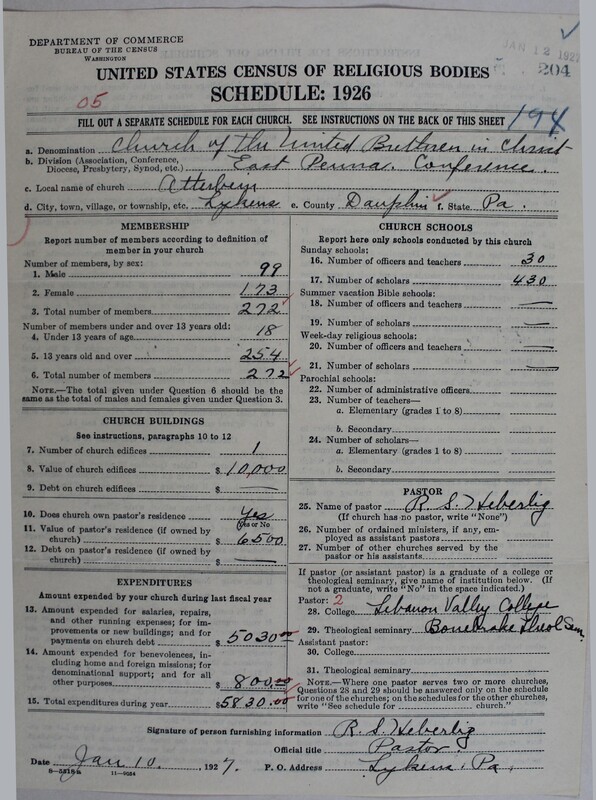 DEPARTMENT OF COMMERCE
BUREAU OF THE CENSUS
WASHINGTON
JAN 12 1927
204
UNITED STATES CENSUS OF RELIGIOUS BODIES
SCHEDULE: 1926
05
194
FILL OUT A SEPARATE SCHEDULE FOR EACH CHURCH. SEE INSTRUCTIONS ON THE BACK OF THIS SHEET
a. Denomination Church of the United Brethren in Christ
b. Division (Association, Conference, Diocese, Presbytery, Synod, etc.) East Penna. Conference.
c. Local name of church Otterbein
d. City, town, village, or township, etc. Lykens e. County Dauphin f. State Pa.
MEMBERSHIP
Report number of members according to definition of
member in your church
Number of members, by sex:
1. Male 99
2. Female 173
3. Total number of members 272
Number of members under and over 13 years old:
4. Under 13 years of age 18
5. 13 years old and over 254
6. Total number of members 272
NOTE.—The total given under Question 6 should be
same as the total of males and females given under Question 3.
CHURCH BUILDINGS
See instructions, paragraphs 10 to 12
7. Number of church edifices 1
8. Value of church edifices $ 10,000
9. Debt on church edifices $ —
10. Does church own pastor's residence Yes
(Yes or No)
11. Value of pastor's residence (if owned by
church) $ 6500
12. Debt on pastor's residence (if owned by
church) $ —
EXPENDITURES
Amount expended by your church during last fiscal year
13. Amount expended for salaries, repairs,
and other running expenses; for im-
provements or new buildings; and for
payments on church debt $ 5030.00
14. Amount expended for benevolences,
including home and foreign missions; for
denominational support; and for all
other purposes $ 800.00
15. Total expenditures during year $ 5830.00
CHURCH SCHOOLS
Report here only schools conducted by this church
Sunday schools:
16. Number of officers and teachers 30
17. Number of scholars 430
Summer vacation Bible schools:
18. Number of officers and teachers —
19. Number of scholars —
Week-day religious schools:
20. Number of officers and teachers —
21. Number of scholars —
Parochial schools:
22. Number of administrative officers
23. Number of teachers—
a. Elementary (grades 1 to 8)
b. Secondary
24. Number of scholars—
a. Elementary (grades 1 to 8)
b. Secondary
PASTOR
25. Name of pastor R. S. Heberlig
(If church has no pastor, write "None")
26. Number of ordained ministers, if any, em-
ployed as assistant pastors
27. Number of other churches served by the
pastor or his assistants
If pastor (or assistant pastor) is a graduate of a college or
theological seminary, give name of institution below. (If
not a graduate, write "No" in the space indicated.)
Pastor: 2
28. College Lebanon Valley College
29. Theological seminary Bonebrake Theol Sem.
Assistant pastor:
30. College
31. Theological seminary
NOTE.—Where one pastor serves two or more churches,
Questions 28 and 29 should be answered only on the schedule
for one of the churches; on the schedules for the other churches,
write "See schedule for church."
Signature of person furnishing information R. S. Heberlig
Official title Pastor
Date Jan 10, 1927. P. O. Address Lykens, Pa.
11—9264